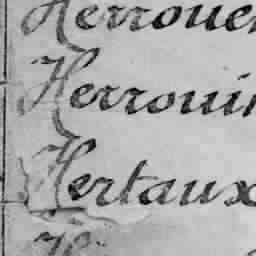 Herroue
Herroui
Hertaux